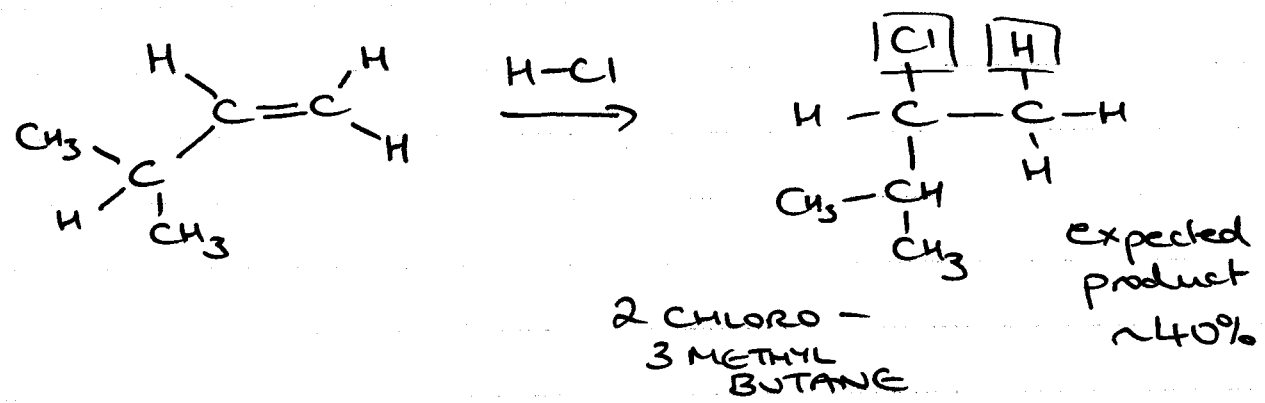 H H
C=C
H
CH3
C
H
CH3
H-Cl
Cl H
H - C - C - H
H
CH3 - CH
CH3
expected
product
~40%
2 CHLORO -
3 METHYL
BUTANE